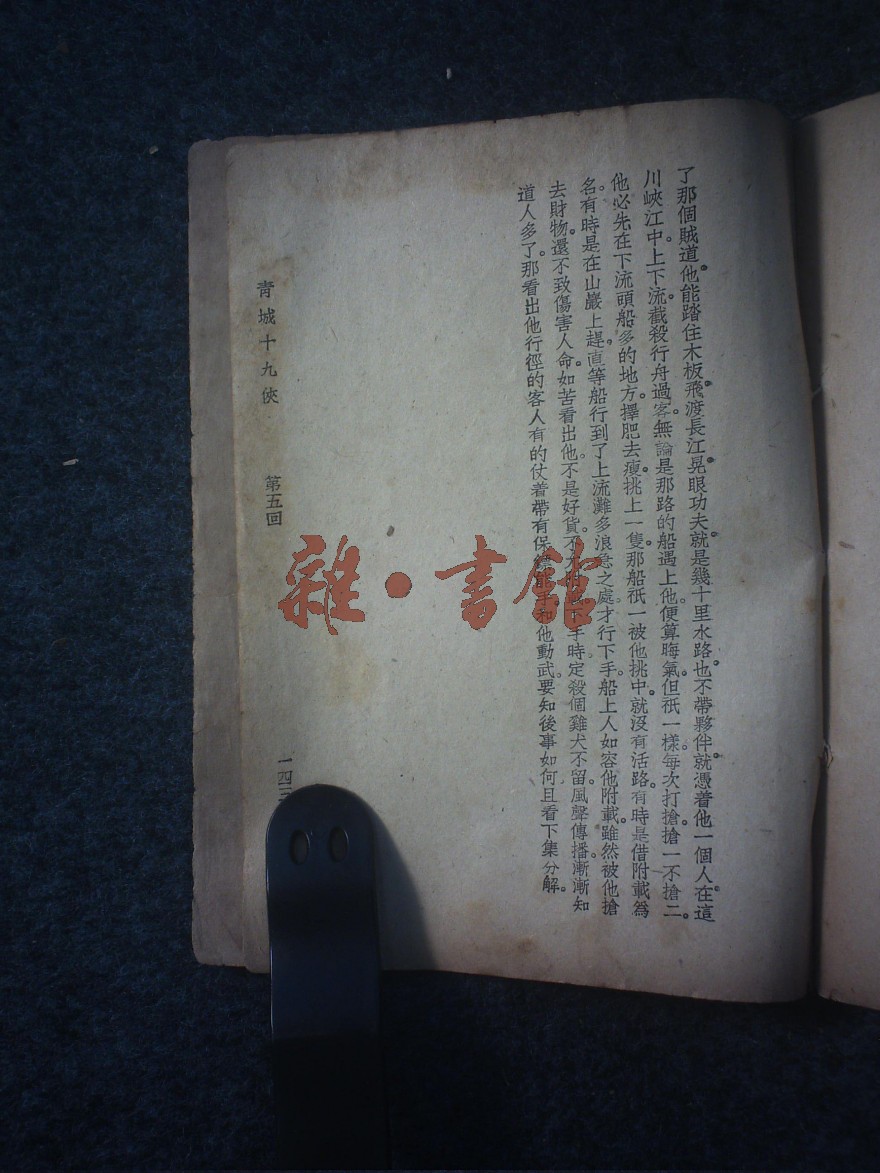 了那個賊道。他能踏住木板。飛渡長江。晃眼功夫。就是幾十里水路。也不帶夥伴。就憑着他一個人。在這
川峽江中。上下流截殺行舟過客。無論是那路的船。遇上他便算晦氣。但祇一樣。每次打搶。搶一不搶二。
他必先在下流頭船多的地方。擇肥去瘦。挑上一隻。那船祇一被他挑中。就沒有活路。有時是借附載爲
名。有時是在山巖上趕。直等船行到了上流灘多浪急之處。才行下手。船上人如容他附載。雖然被他搶
去財物。還不致傷害人命。如苦看出他不是好貨。不下手時。定殺個雞犬不留。風聲傳播。漸漸知
道人多了。那看出他行徑的客人。有的仗着帶有保手和他動武。要知後事如何。且看下集分解。
青城十九俠
第五回
一四三
雜·書館